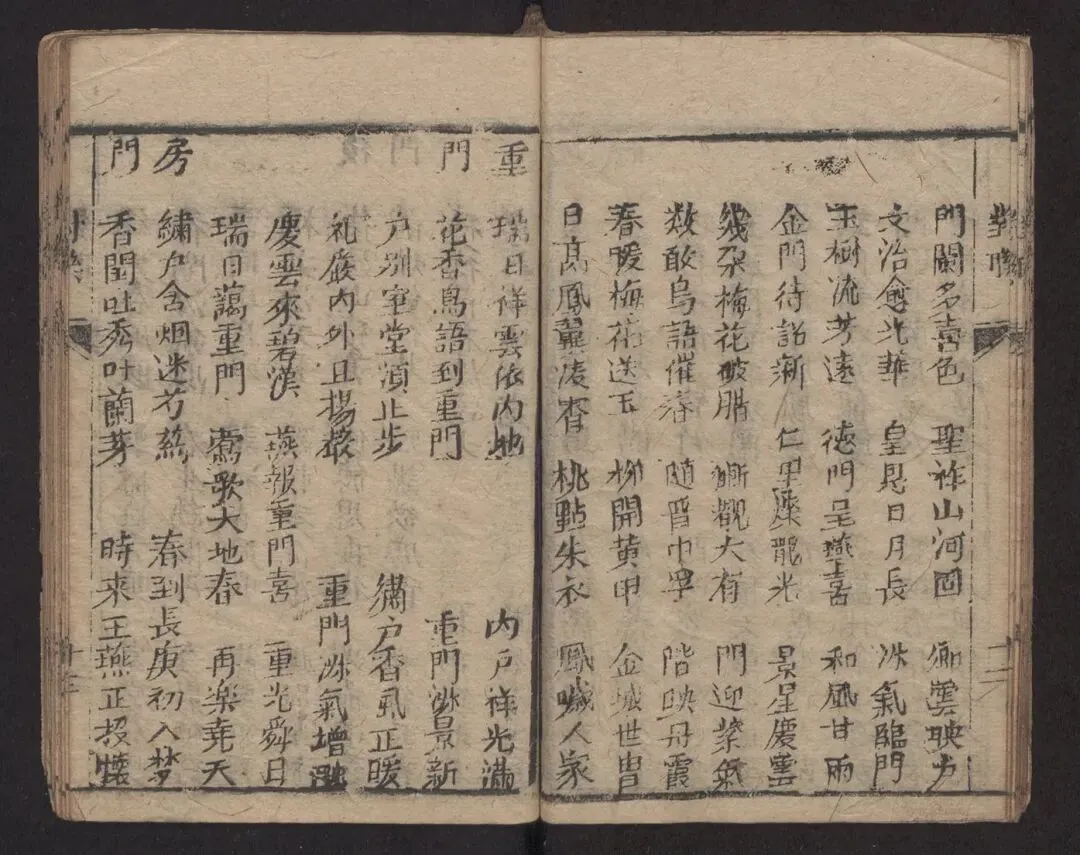 對聯
十二
門闌多喜色 聖祚山河固 卿雲映
文治愈光華 皇恩日月長 淑氣臨門
玉樹流芳遠 德門呈燕喜 和風甘雨
金門待詔新 仁里燦龍光 景星慶雲
幾朶梅花破腊 斯觀大有 門迎紫氣
数敢鳥語催春 随 巾孚 階映丹霞
春暖梅花送玉 柳開黄甲 金城世胄
日髙鳳翼凌 桃點朱衣 鳳噦人家
重 瑞日祥雲依内地 内户祥光滿
門 花香鳥語到重門 重門淑景新
户別室堂須止步 繡户香風正暖
礼嚴内外且揚聲 重門淑氣增融
慶雲來碧漢 燕報重門喜 重光舜日
瑞日藹重門 鶯歌大地春 再樂堯天
房 繡户含烟迷芳 春到長庚初入梦
門 香閨吐秀叶蘭芽 時來玉燕正投懷
十三